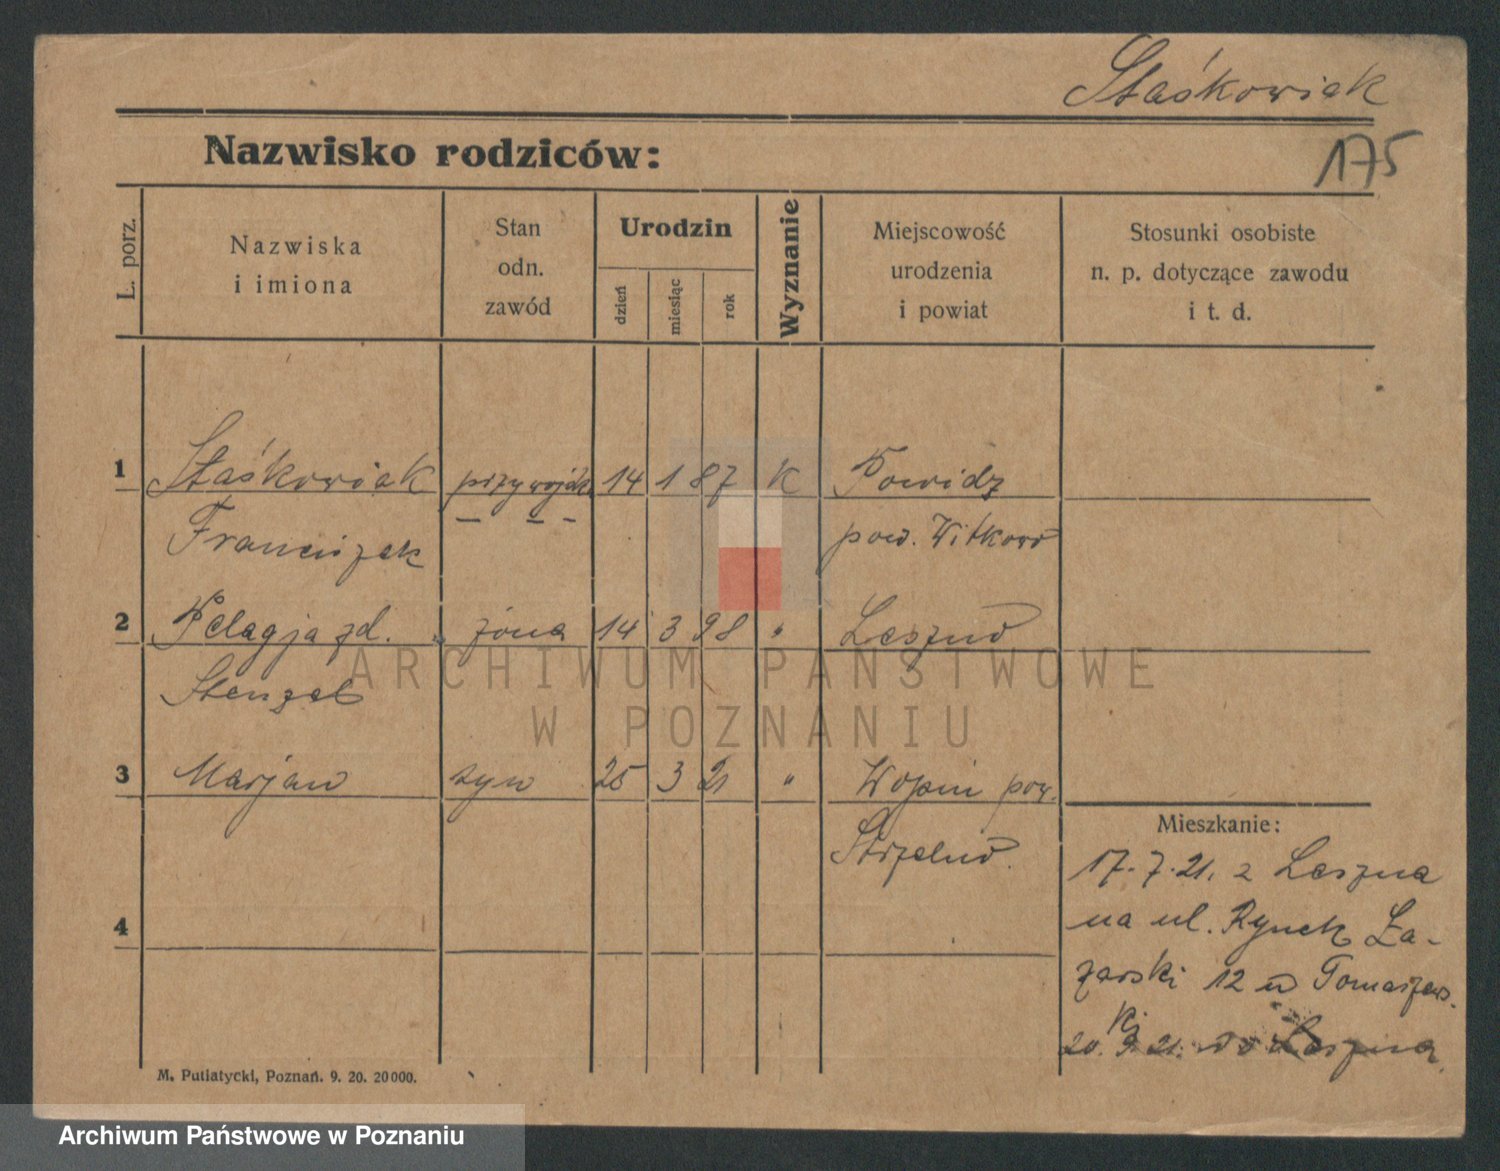 Staśkowiak
175
Nazwisko rodziców:
L. porz.
Nazwiska
i imiona
Stan
odn.
zawód
Urodzin
dzień
miesiąc
rok
Wyznanie
Miejscowość
urodzenia
i powiat
Stosunki osobiste
n. p. dotyczące zawodu
i t. d.
1 Staśkowiak 14 1 87 K Powidz
Franciszek pow. Witkowo
2 Pelagja zd. żona 14 3 98 " Leszno
Stenzel
3 Marjan syn 25 3 21 " pow.
Strzelno.
Mieszkanie:
17.7.21. z Leszna
na ul. Rynek Ła-
zarski 12 u Tomaszews.
ki
20. 9. 21. do Leszna.
4
M. Putiatycki, Poznań. 9. 20. 20000.
ARCHIWUM PAŃSTWOWE
W POZNANIU
Archiwum Państwowe w Poznaniu